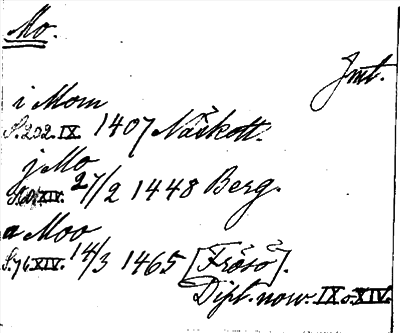 Mo.
Jmt.
i Mom
S. 202. IX. 1407 Näskott.
j Mo
XIV. 27/2 1448 Berg.
a Moo
S. 76. XIV. 14/3 1465 [Frösö].
Dipl. norv. IX o. XIV.